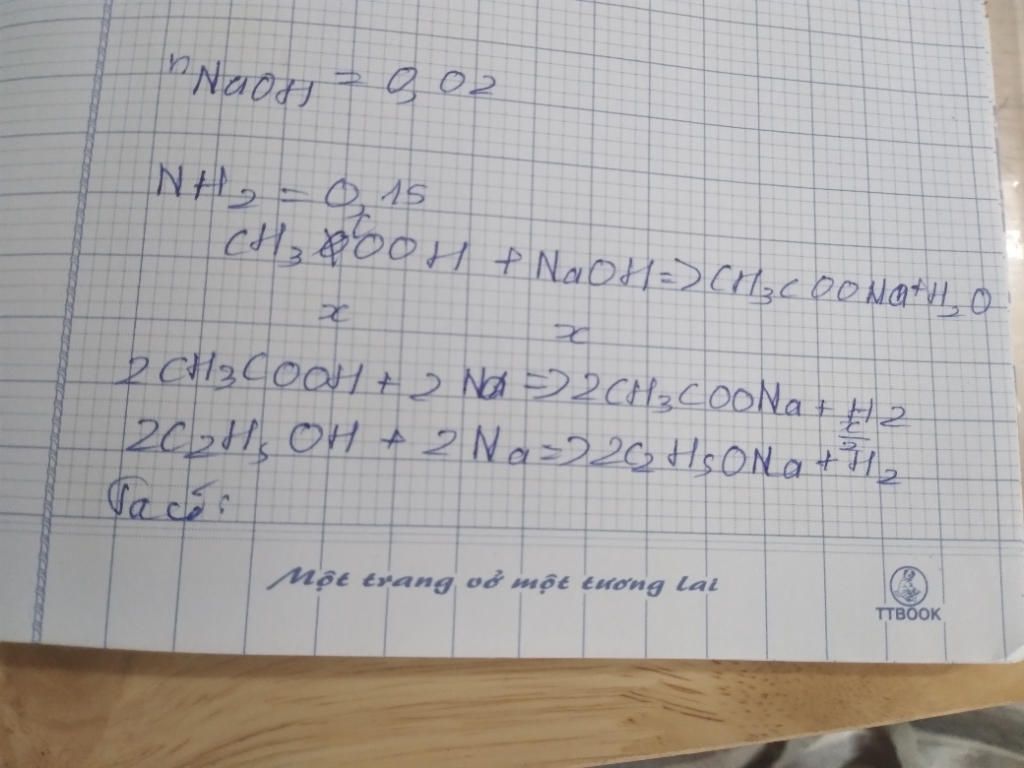 nNaOH = 0,02
NH2 = 0,15
CH3COOH + NaOH => CH3COONa + H2O
x x
2CH3COOH + 2Na => 2CH3COONa + H2
2C2H5OH + 2Na => 2C2H5ONa + H2
Ta có:
Một trang vở một tương lai
TTBOOK